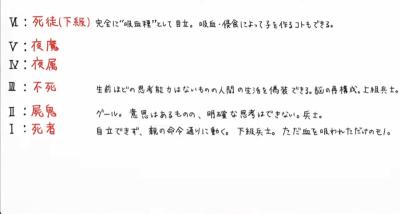 Ⅵ：死徒(下級) 完全に"吸血種"として自立。吸血・侵食によって子を作るコトもできる。
Ⅴ：夜魔
Ⅳ：夜属
Ⅲ：不死 生前ほどの思考能力はないものの人間の生活を偽装できる。脳の再構成。上級兵士。
Ⅱ：屍鬼 グール。意思はあるものの、明確な思考はできない。兵士。
Ⅰ：死者 自立できず、親の命令通りに動く。下級兵士。ただ血を吸われただけのモノ。